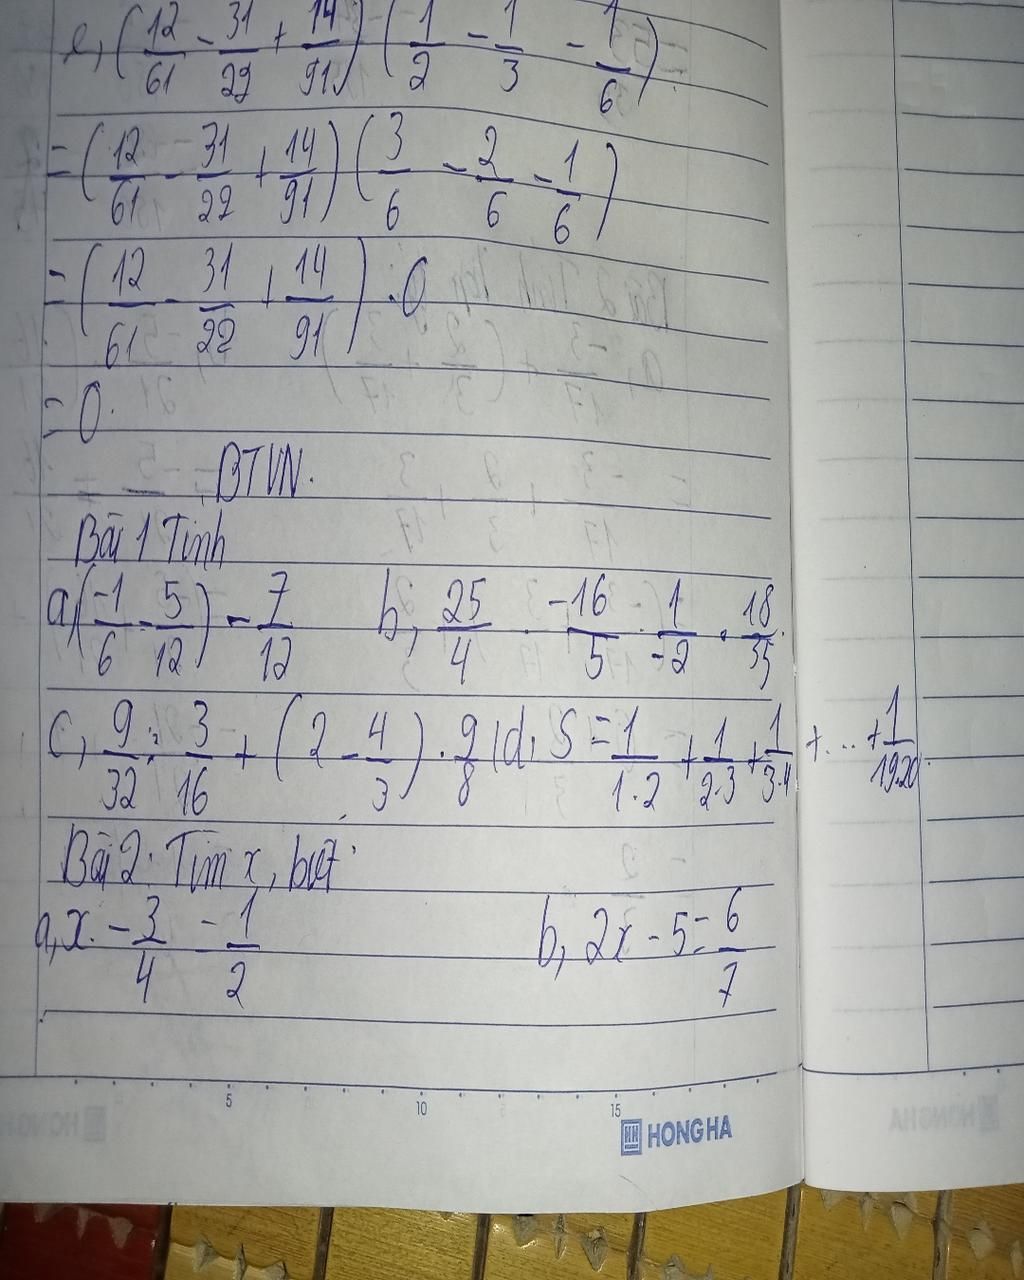 e, (12/61 - 31/22 + 14/91) (1/2 - 1/3 - 1/6)
= (12/61 - 31/22 + 14/91) (3/6 - 2/6 - 1/6)
= (12/61 - 31/22 + 14/91) . 0
= 0.
BTVN.
Bài 1 Tính
a, (-1/6 - 5/12) - 7/12 b, 25/4 . -16/5 . 1/-2 . 18/35
c, 9/32 : 3/16 + (2 - 4/3) . 9/8 d, S = 1/1.2 + 1/2.3 + 1/3.4 + ... + 1/19.20
Bài 2: Tìm x, biết:
a, x - 3/4 = 1/2 b, 2x - 5 = 6/7
5 10 15
HONG HA